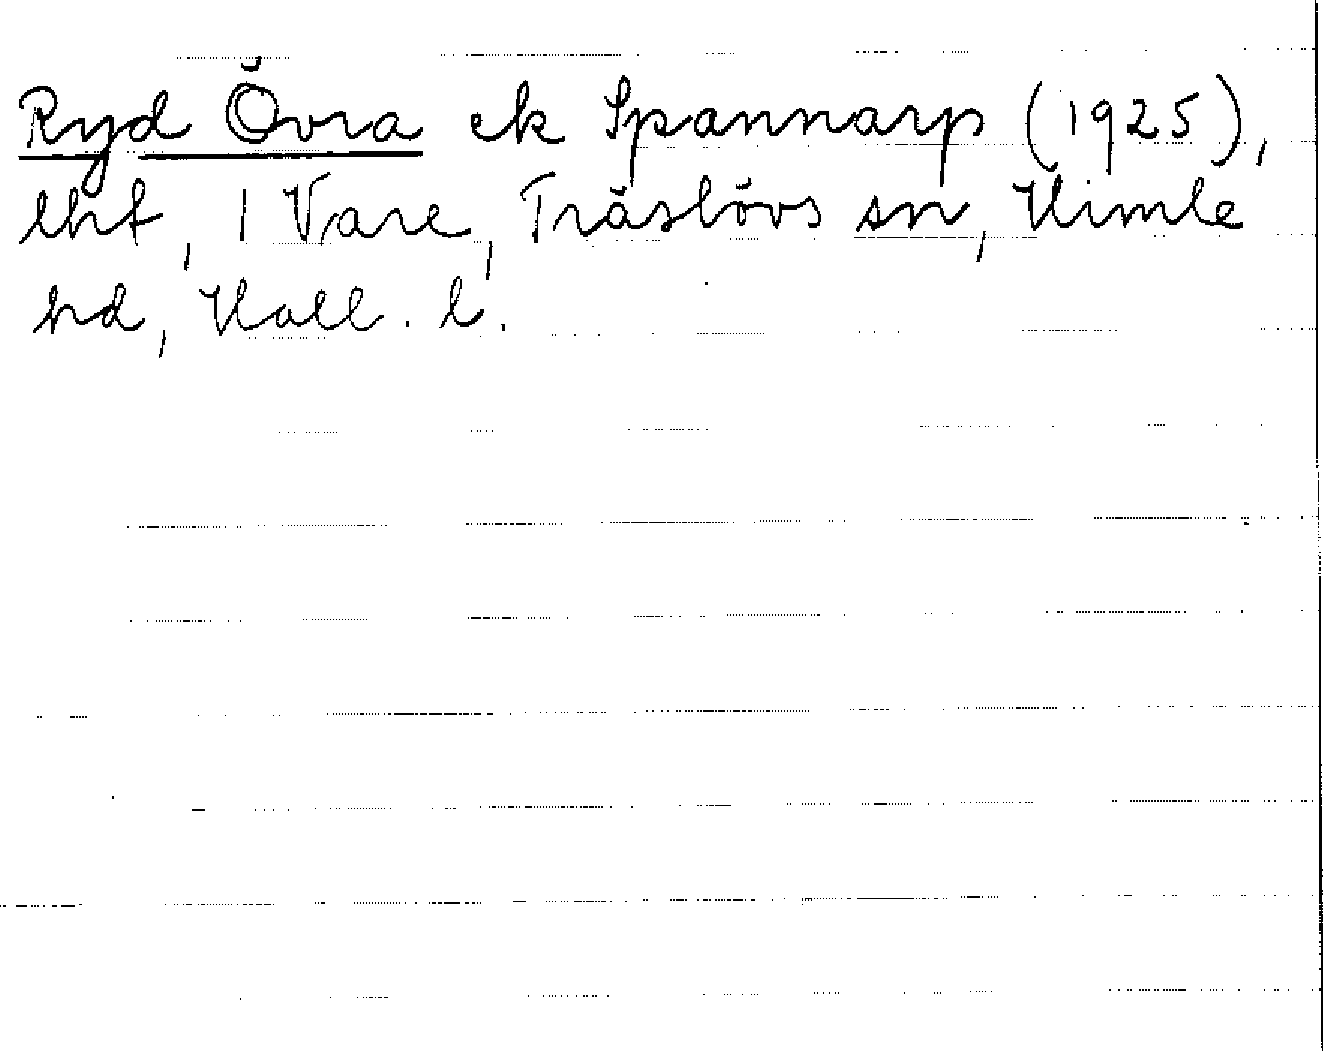 Ryd Övra ek Spannarp (1925),
lht, 1 Vare, Träslövs sn, Himle
hd, Hall. l.